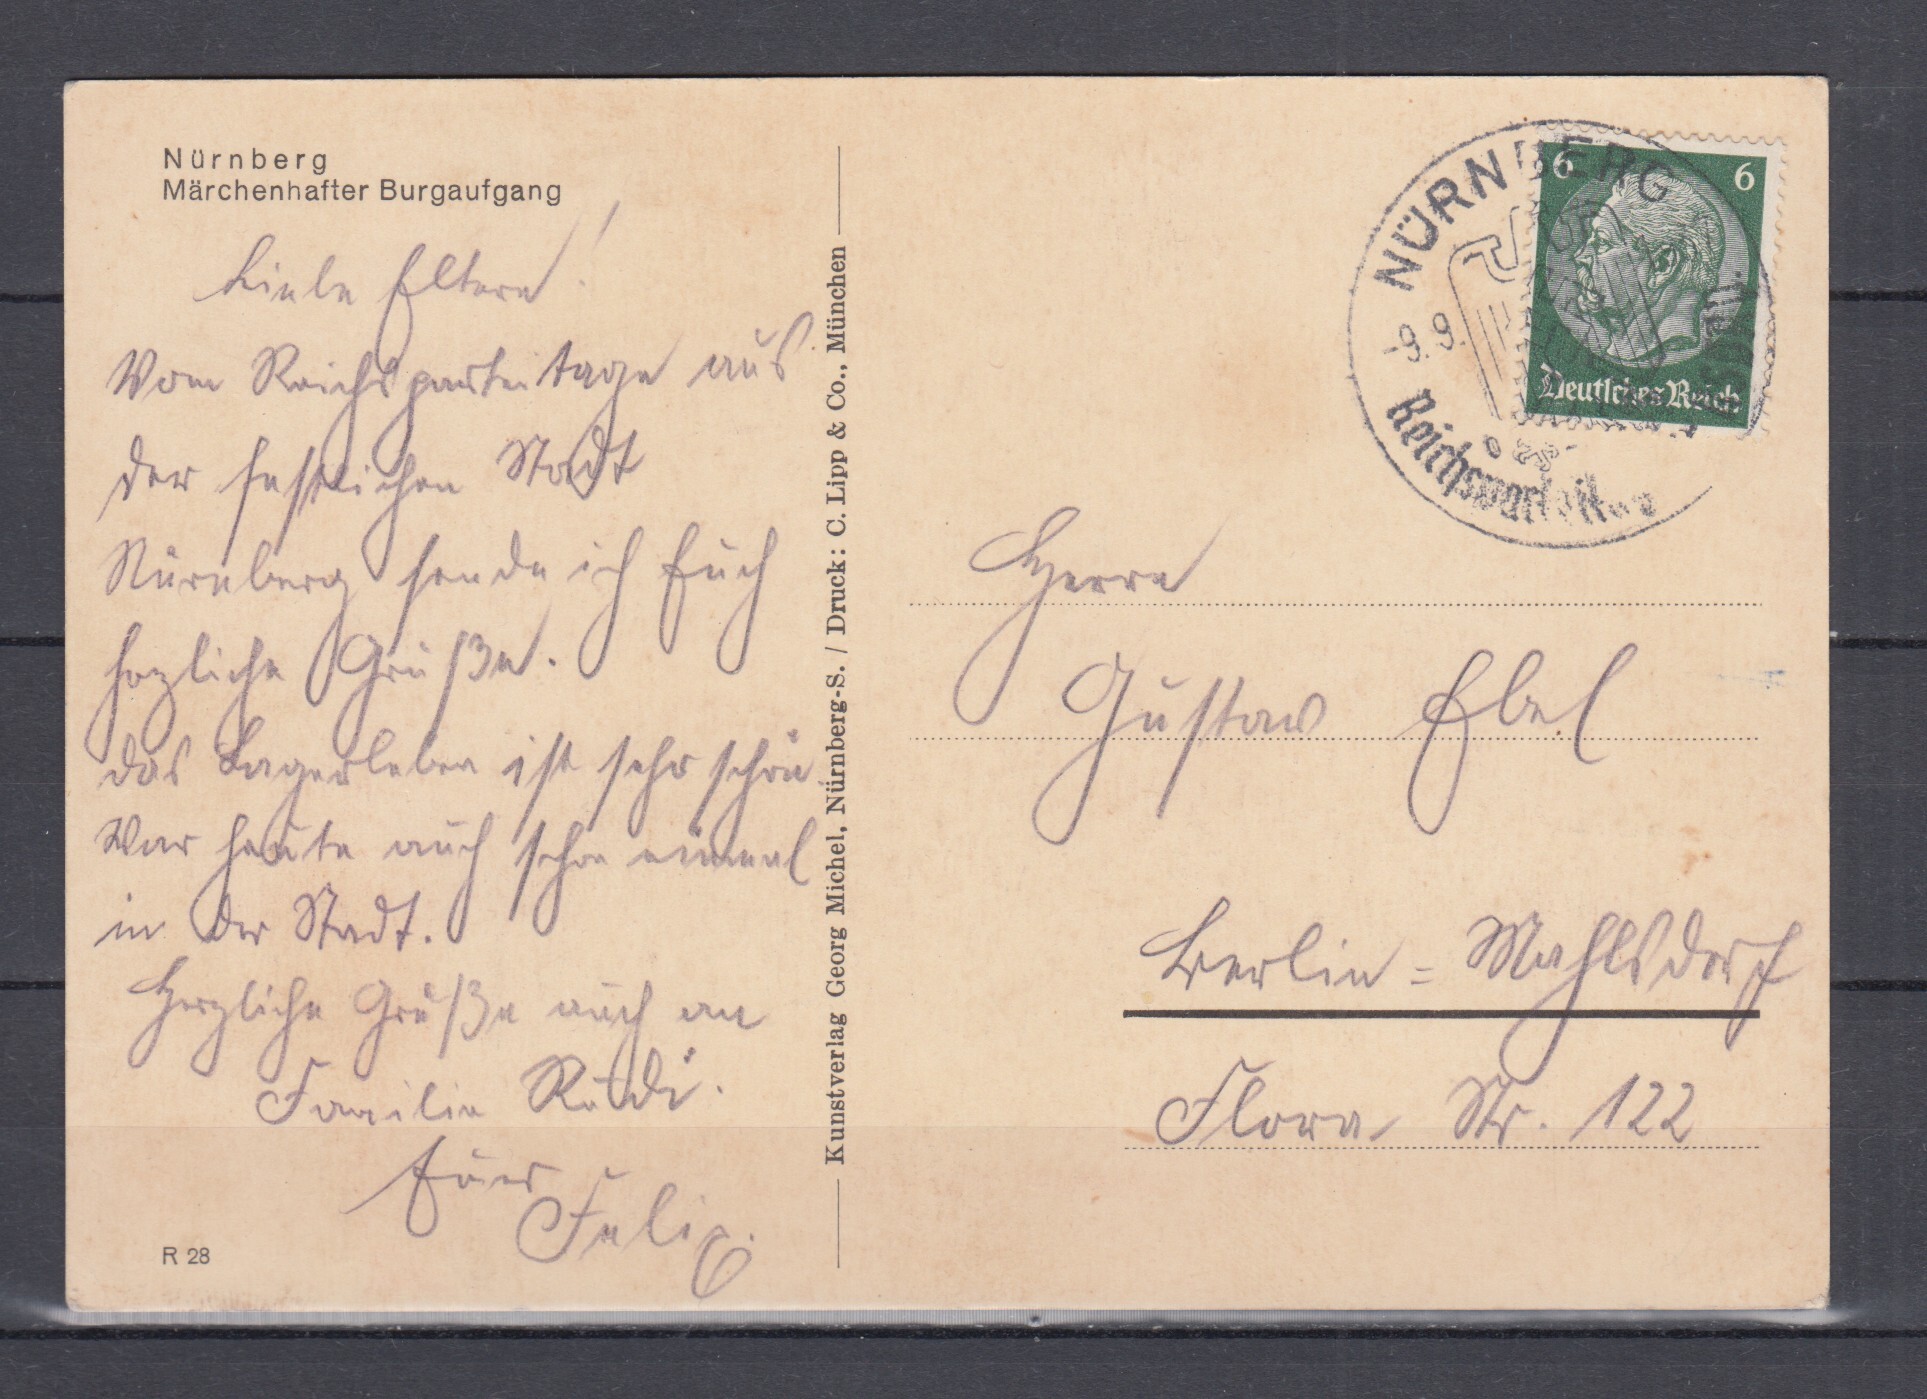 Nürnberg
Märchenhafter Burgaufgang
Liebe Eltern!
Vom Reichsparteitage aus
der festlichen Stadt
Nürnberg sende ich Euch
herzliche Grüße.
das Lagerleben ist sehr schön
War heute auch schon einmal
in der Stadt.
Herzliche Grüße auch an
Familie Rudi.
Euer
Felix.
R 28
Kunstverlag Georg Michel, Nürnberg-S. / Druck: C. Lipp & Co., München
NÜRNBERG
-9. 9.
6 6
Deutsches Reich
Herrn
Gustav Ebel
Berlin = Mahlsdorf
Flora Str. 122